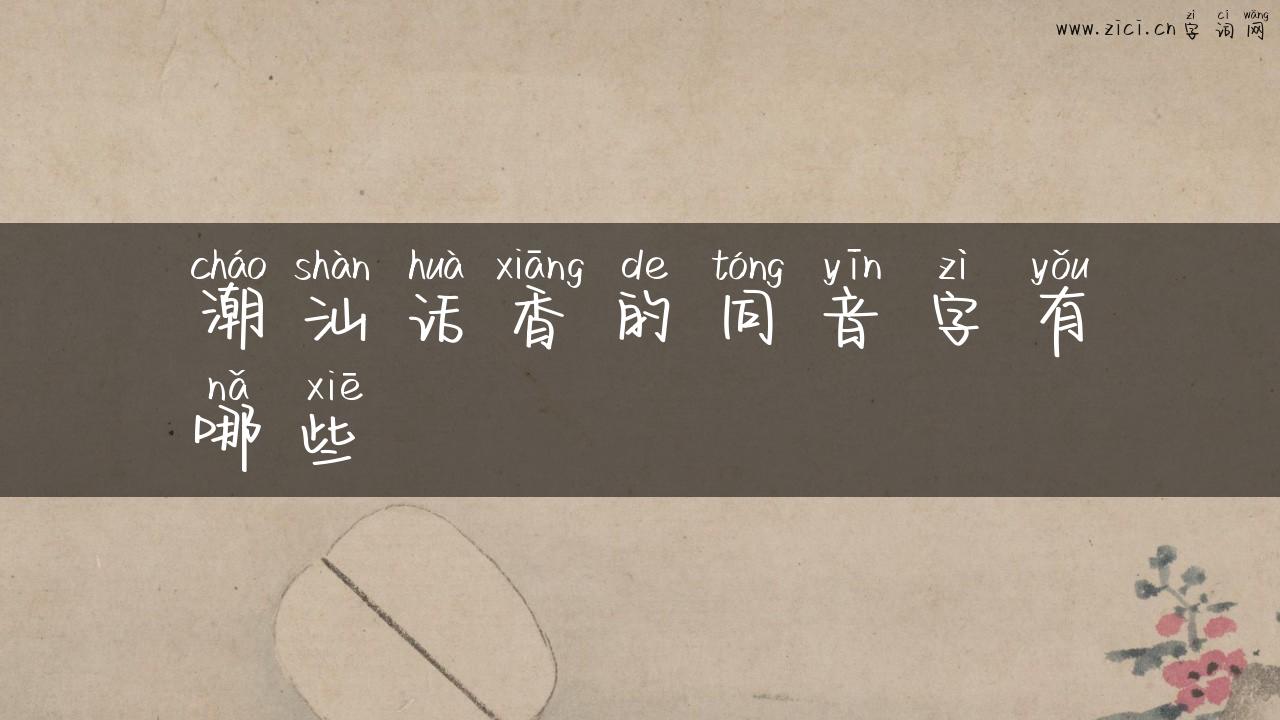 zì cí wǎng
www.zici.cn字词网
cháo shàn huà xiāng de tóng yīn zì yǒu
潮汕话香的同音字有
nǎ xiē
哪些